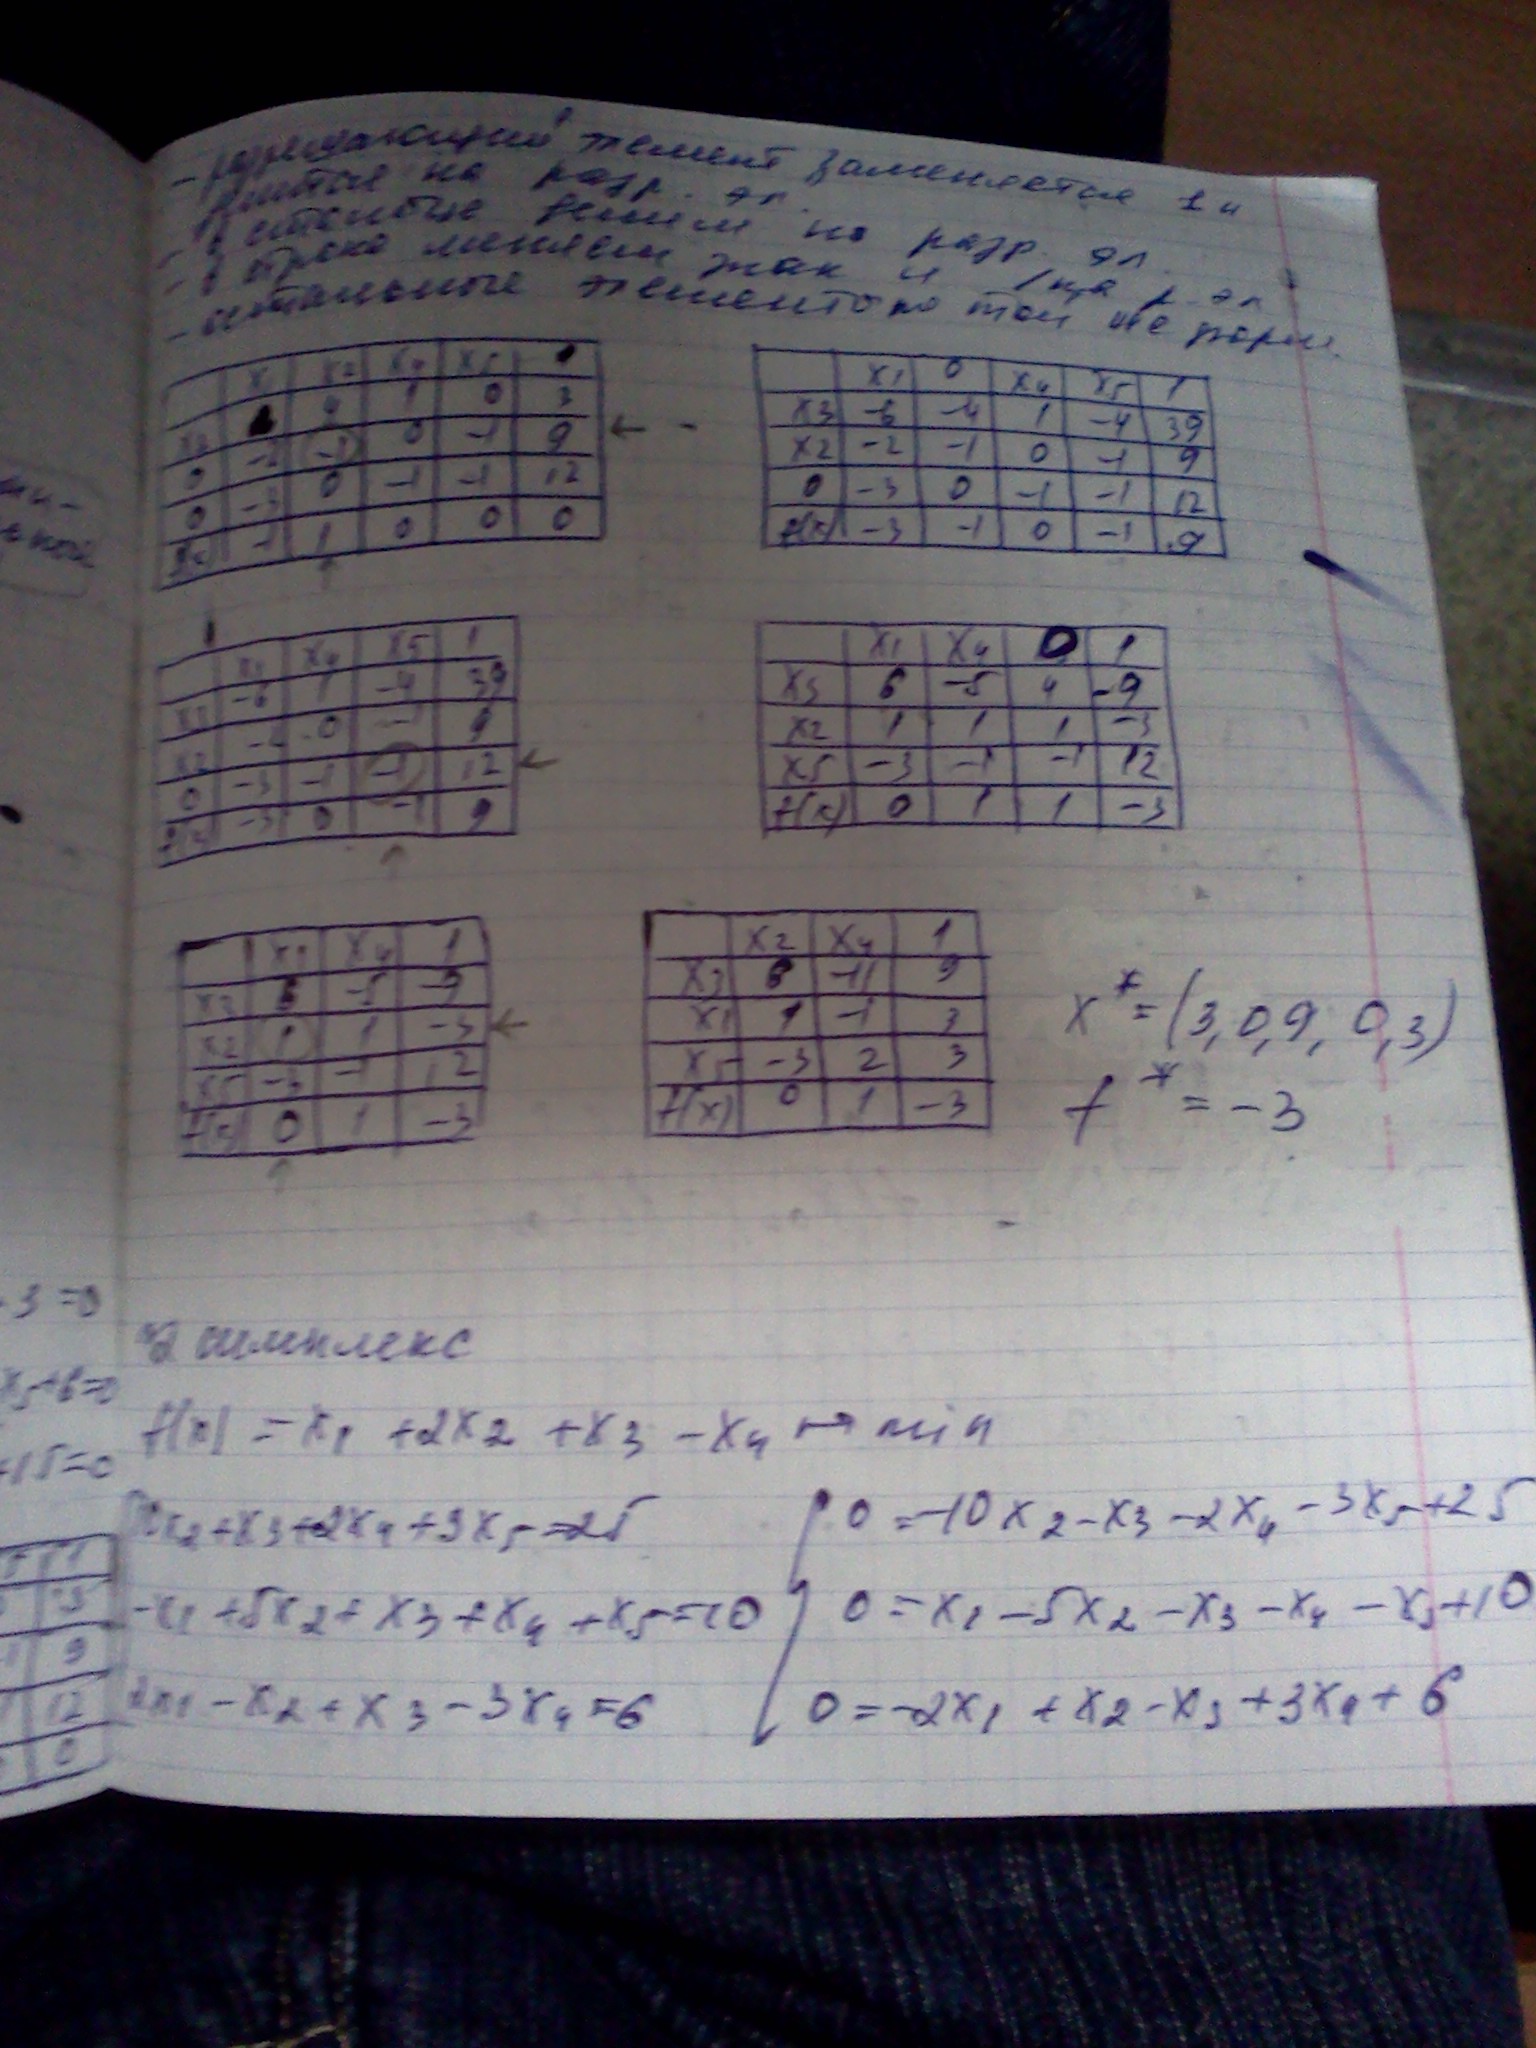 - разрешающий элемент заменяется 1 и
делится на разр. эл.
- в столбце делим на разр. эл.
- в строке меняем знак и / на р. эл
- остальные элементы по той же форм.
x1 x2 x4 x5
x3 4 1 0 3
0 -2 -1 0 -1 9
0 -3 0 -1 -1 12
f(x) -1 1 0 0 0
x1 0 x4 x5 1
x3 -6 -4 1 -4 39
x2 -2 -1 0 -1 9
0 -3 0 -1 -1 12
f(x) -3 -1 0 -1 9
x1 x4 x5 1
x3 -6 1 -4 39
x2 -2 0 -1 9
0 -3 -1 -1 12
f(x) -3 0 -1 9
x1 x4 0 1
x3 6 -5 4 -9
x2 1 1 1 -3
x5 -3 -1 -1 12
f(x) 0 1 1 -3
x1 x4 1
x3 6 -5 -9
x2 1 1 -3
x5 -3 -1 12
f(x) 0 1 -3
x2 x4 1
x3 6 -11 9
x1 1 -1 3
x5 -3 2 3
f(x) 0 1 -3
x* = (3,0,9, 0,3)
f* = -3
симплекс
f(x) = x1 + 2x2 + x3 - x4 → min
10x2+x3+2x4+3x5=25
-x1+5x2+x3+x4+x5=10
2x1-x2+x3-3x4=6
0=-10x2-x3-2x4-3x5+25
0=x1-5x2-x3-x4-x5+10
0=-2x1+x2-x3+3x4+6
3=0
x5+6=0
+15=0
1
9
12
0